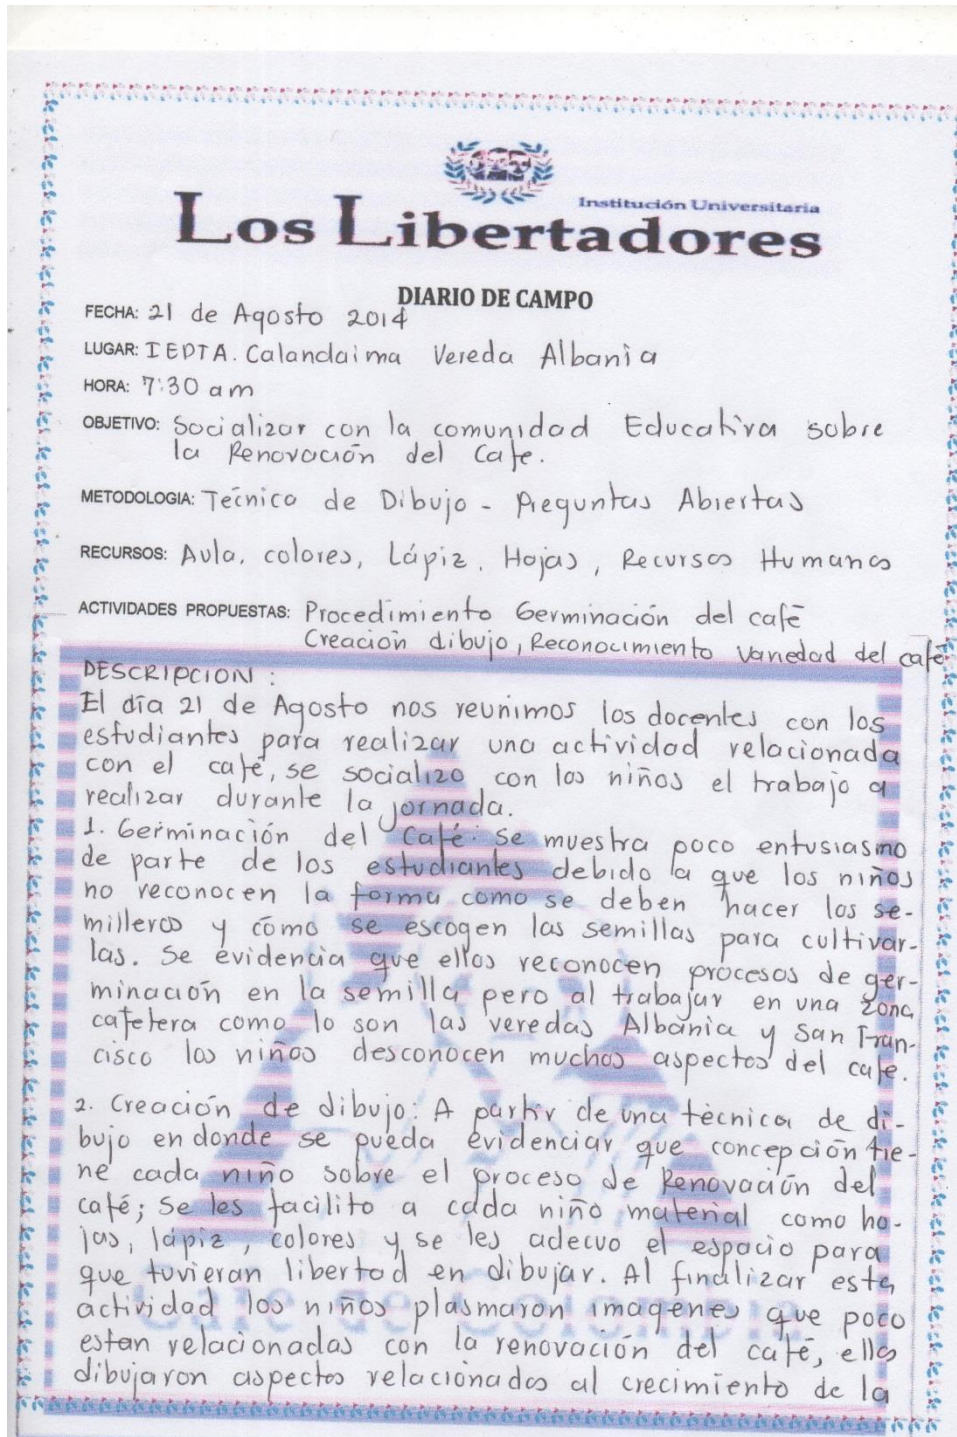 Institución Universitaria
Los Libertadores
DIARIO DE CAMPO
FECHA: 21 de Agosto 2014
LUGAR: IEDTA. Calandaima Vereda Albania
HORA: 7:30 am
OBJETIVO: Socializar con la comunidad Educativa sobre
la Renovación del Cafe.
METODOLOGIA: Técnica de Dibujo - Preguntas Abiertas
RECURSOS: Aula, colores, Lápiz, Hojas, Recursos Humanos
ACTIVIDADES PROPUESTAS: Procedimiento Germinación del café
Creación dibujo, Reconocimiento Variedad del café
DESCRIPCION:
El día 21 de Agosto nos reunimos los docentes con los
estudiantes para realizar una actividad relacionada
con el café, se socializo con los niños el trabajo a
realizar durante la jornada.
1. Germinación del Café: Se muestra poco entusiasmo
de parte de los estudiantes debido a que los niños
no reconocen la forma como se deben hacer los se-
milleros y cómo se escogen las semillas para cultivar-
las. Se evidencia que ellos reconocen procesos de ger-
minación en la semilla pero al trabajar en una zona
cafetera como lo son las veredas Albania y San Fran-
cisco los niños desconocen muchos aspectos del cafe.
2. Creación de dibujo: A partir de una tècnica de di-
bujo en donde se pueda evidenciar que concepción tie-
ne cada niño sobre el proceso de Renovación del
café; Se les facilito a cada niño material como ho-
jas, lápiz, colores y se les adecuo el espacio para
que tuvieran libertad en dibujar. Al finalizar esta
actividad los niños plasmaron imagenes que poco
estan relacionadas con la renovación del café, ellos
dibujaron aspectos relacionados al crecimiento de la
Café de Colombia